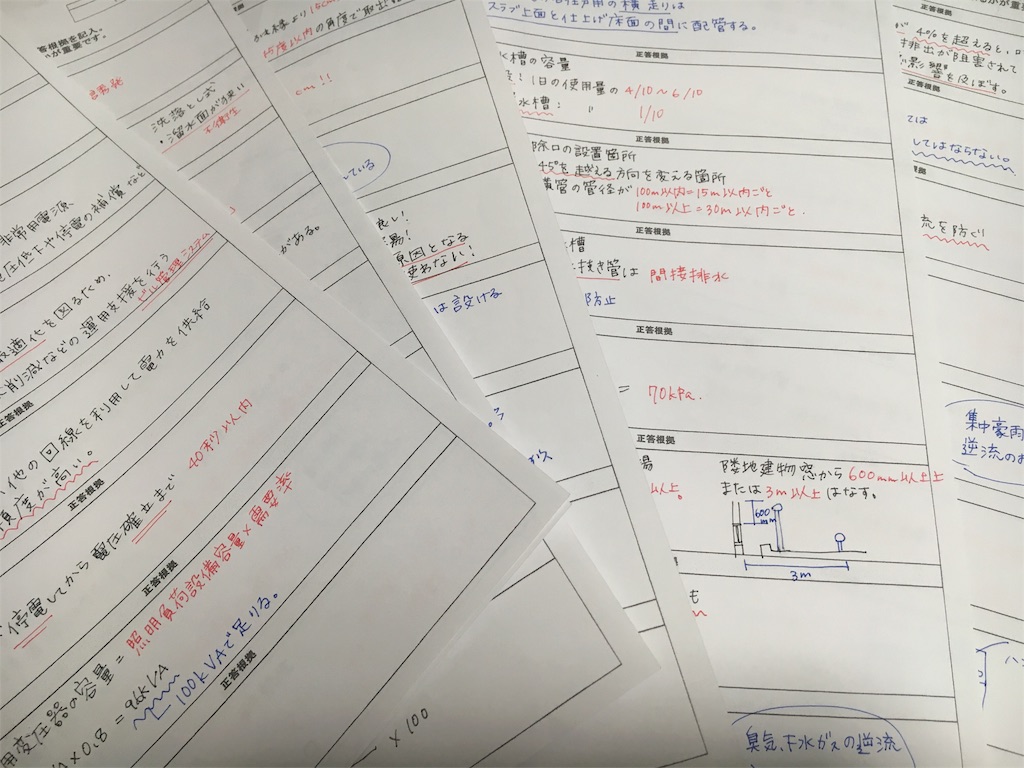 答根拠を記入。
が重要です。
洗落とし式
・溜水面が狭い
不衛生
非常用電源
電圧低下や停電の補償など
最適化を図るため、
削減などの運用支援を行う
ビル管理システム
正答根拠
他の回線を利用して電力を供給
頼度が高い。
正答根拠
停電してから電圧確立まで 40秒以内
正答根拠
用変圧器の容量=照明負荷設備容量×需要率
×0.8=96kVA
100kVAで足りる。
正答根拠
15度以内の角度で取出
cm!!
ている
がある。
良い!
原因となる
使わない!
は設ける
×100
スラブ上面と仕上げ床面の間に配管する。
正答根拠
水槽の容量
1日の使用量の4/10〜6/10
水槽: 〃 1/10
正答根拠
除口の設置箇所
45°を越える方向を変える箇所
管の管径が 100m以内=15m以内ごと
100m以上=30m以内ごと.
正答根拠
槽
抜き管は 間接排水
防止
正答根拠
= 70kPa.
正答根拠
湯
以上。
隣地建物窓から600mm以上上
または3m以上はなす。
600
mm
3m
も
臭気、下水ガスの逆流
正答根拠
が4%を超えると、
排出が阻害されて
影響を及ぼす。
正答根拠
ては
してはならない。
を防ぐ
集中豪雨
逆流の